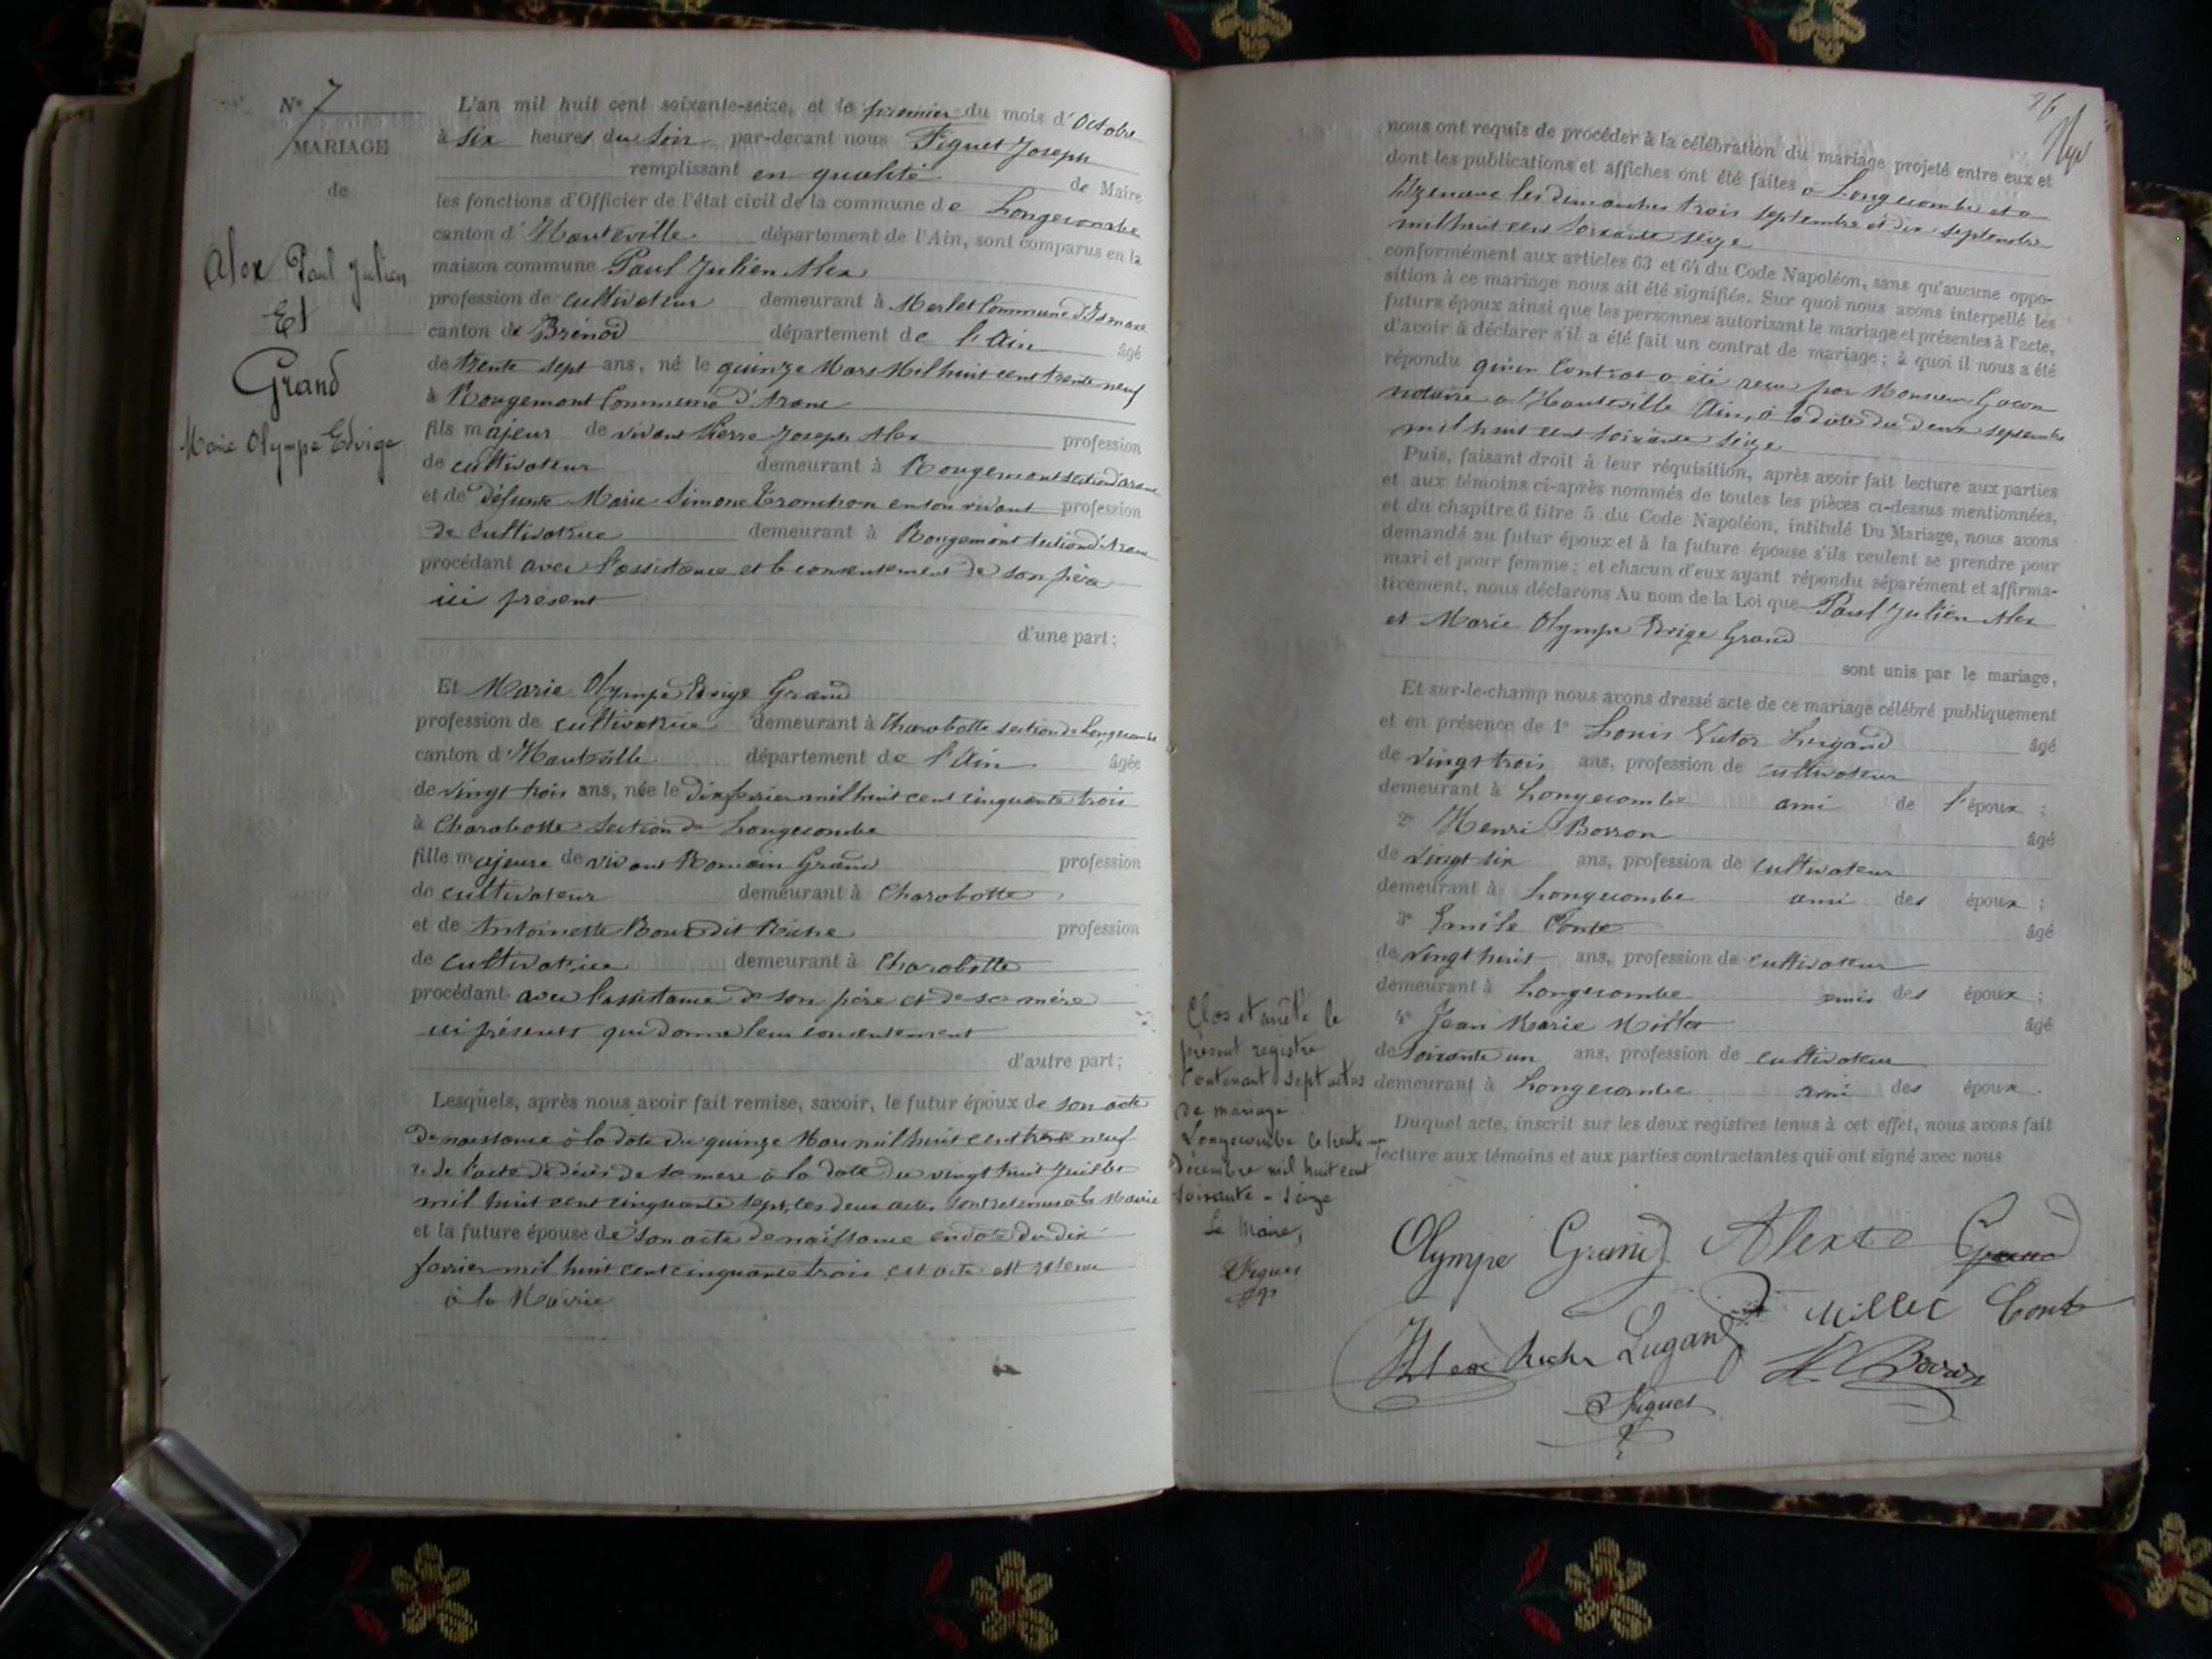 N° 7
MARIAGE
de
Alex Paul Julien
Et
Grand
Marie Olympe Edvige
L'an mil huit cent soixante-seize, et le premier du mois d'Octobre
à six heures du soir par-devant nous Figuet Joseph
remplissant en qualité de Maire
les fonctions d'Officier de l'état civil de la commune de Longecombe
canton d'Hauteville département de l'Ain, sont comparus en la
maison commune Paul Julien Alex
profession de cultivateur demeurant à Merlet Commune
canton de Brénod département de l'Ain âgé
de trente sept ans, né le quinze Mars Mil huit cent trente neuf
à Rougemont Commune d'Aranc
fils majeur de vivant Pierre Joseph Alex profession
de cultivateur demeurant à Rougemont section d'aranc
et de défunte Marie Simone Tronchon en son vivant profession
de cultivatrice demeurant à Rougemont section d'Aranc
procédant avec l'assistance et le consentement de son père
ici présent
d'une part;
Et Marie Olympe Edvige Grand
profession de cultivatrice demeurant à Charabotte section de Longecombe
canton d'Hauteville département de l'Ain âgée
de vingt trois ans, née le dix fevrier mil huit cent cinquante trois
à Charabotte section de Longecombe
fille majeure de vivant Romain Grand profession
de cultivateur demeurant à Charabotte
et de Antoinette Roux dit Riche profession
de cultivatrice demeurant à Charabotte
procédant avec l'assistance de son père et de sa mère
ici présents qui donne leur consentement
d'autre part;
Lesquels, après nous avoir fait remise, savoir, le futur époux de son acte
de naissance à la date du quinze Mars mil huit cent trente neuf
de l'acte de décès de sa mere à la date du vingt huit Juillet
mil huit cent cinquante sept, ces deux actes sont retenus à la Mairie
et la future épouse de son acte de naissance en date du dix
fevrier mil huit cent cinquante trois cet acte est retenu
à la Mairie
26
nous ont requis de procéder à la célébration du mariage projeté entre eux et
dont les publications et affiches ont été faites a Longecombe et a
Izenave les dimanches trois septembre et dix septembre
mil huit cent soixante seize
conformément aux articles 63 et 64 du Code Napoléon, sans qu'aucune oppo-
sition à ce mariage nous ait été signifiée. Sur quoi nous avons interpellé les
futurs époux ainsi que les personnes autorisant le mariage et présentes à l'acte,
d'avoir à déclarer s'il a été fait un contrat de mariage; à quoi il nous a été
répondu qu'un Contrat a été reçu par Monsieur Gacon
notaire a Hauteville Ain, à la date du deux septembre
mil huit cent soixante seize
Puis, faisant droit à leur réquisition, après avoir fait lecture aux parties
et aux témoins ci-après nommés de toutes les pièces ci-dessus mentionnées,
et du chapitre 6 titre 5 du Code Napoléon, intitulé Du Mariage, nous avons
demandé au futur époux et à la future épouse s'ils veulent se prendre pour
mari et pour femme; et chacun d'eux ayant répondu séparément et affirma-
tivement, nous déclarons Au nom de la Loi que Paul Julien Alex
et Marie Olympe Edvige Grand
sont unis par le mariage,
Et sur-le-champ nous avons dressé acte de ce mariage célébré publiquement
et en présence de 1° Louis Victor Lugand âgé
de vingt trois ans, profession de cultivateur
demeurant à Longecombe ami de l'époux;
2° Henri Borron âgé
de vingt six ans, profession de cultivateur
demeurant à Longecombe ami des époux;
3° Emile Conte âgé
de vingt huit ans, profession de cultivateur
demeurant à Longecombe amis des époux;
4° Jean Marie Millet âgé
de soixante un ans, profession de cultivateur
demeurant à Longecombe ami des époux.
Duquel acte, inscrit sur les deux registres tenus à cet effet, nous avons fait
lecture aux témoins et aux parties contractantes qui ont signé avec nous
Clos et arrêté le
présent registre
Contenant sept actes
de mariage
Longecombe le trente-un
Décembre mil huit cent
soixante-seize
Le Maire,
Figuet
Olympe Grand Alexte Grand
Alex Riche Lugand Millet Conte
H Borron
Figuet